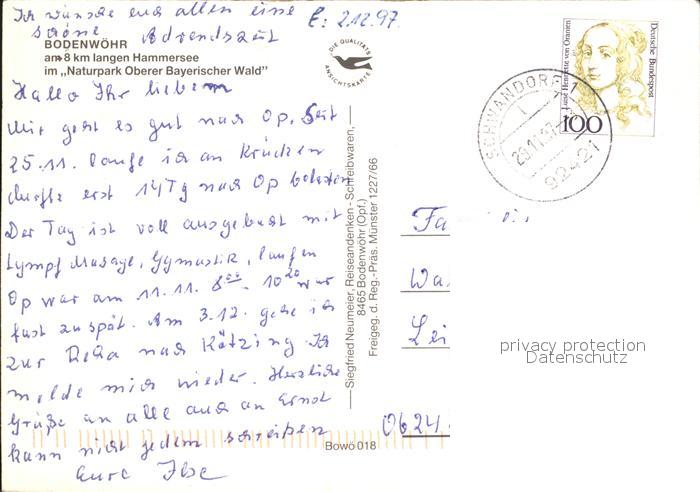 Ich wünsche euch allen eine
schöne Adventszeit
E: 2.12.97.
BODENWÖHR
am 8 km langen Hammersee
im „Naturpark Oberer Bayerischer Wald"
DIE QUALITÄTS
ANSICHTSKARTE
Hallo Ihr lieben
Mir geht es gut nach Op. Seit
25.11. laufe ich an Krücken
durfte erst 14Tg nach Op belasten
Der Tag ist voll ausgebucht mit
Lympf Masage, Gymnastik, laufen
Op war am 11.11. 8°° - 10²⁰ war
fast zu spät. Am 3.12. gehe ich
zur Reha nach Kötzing. Ich
melde mich wieder. Herzliche
Grüße an alle auch an Ernst
kann nicht jedem schreiben
Eure Ilse
Siegfried Neumeier, Reiseandenken - Schreibwaren,
8465 Bodenwöhr (Opf.)
Freigeg. d. Reg.-Präs. Münster 1227/66
Bowö 018
SCHWANDORF 1
92421
Luise Henriette von Oranien
Deutsche Bundespost
100
Fa
Wa
Lei
privacy protection
Datenschutz
0624